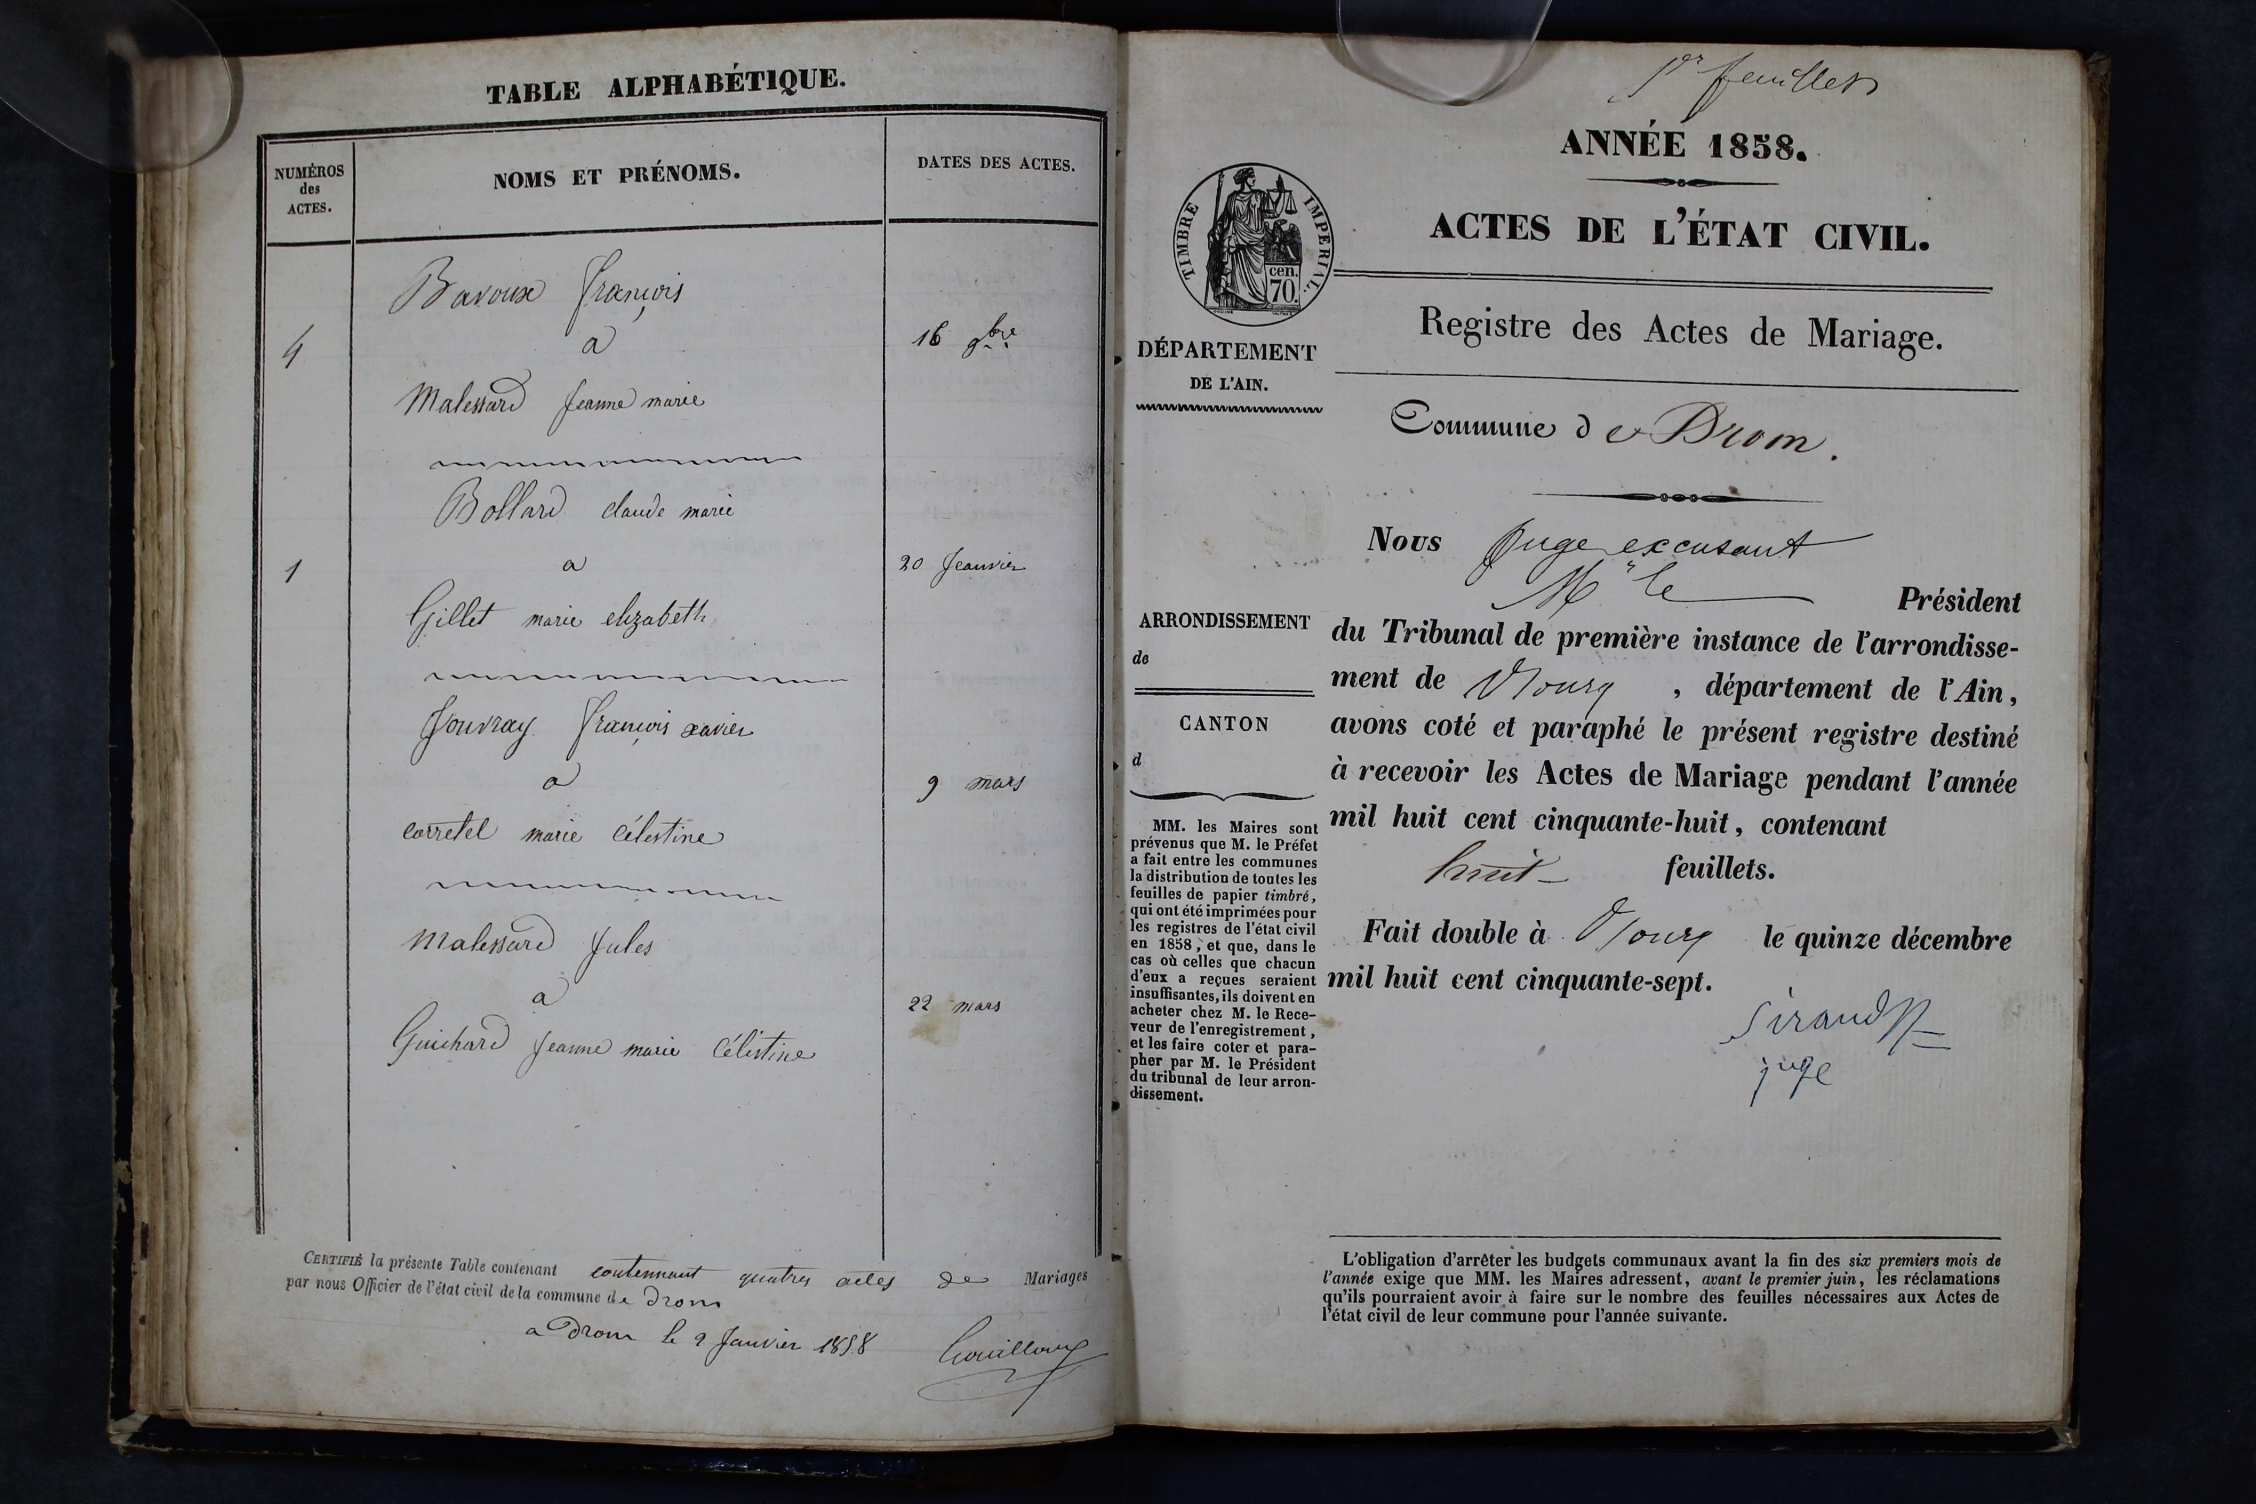 TABLE ALPHABÉTIQUE.
NUMÉROS
des
ACTES.
NOMS ET PRÉNOMS.
DATES DES ACTES.
Bavoux françois
4 a 16 9bre
Malessard Jeanne marie
Bollard claude marie
1 a 20 Jeanvier
Gillet marie elizabeth
Jouvray françois xavier
a 9 mars
corretel marie Célestine
Malessard Jules
a 22 mars
Guichard Jeanne marie Célestine
CERTIFIÉ la présente Table contenant contennant quatres actes de Mariages
par nous Officier de l'état civil de la commune de Drom
a Drom le 9 Janvier 1858
1er feuillet
ANNÉE 1858.
ACTES DE L'ÉTAT CIVIL.
TIMBRE IMPERIAL.
cen.
70.
Registre des Actes de Mariage.
DÉPARTEMENT
DE L'AIN.
Commune de Drom.
Nous Juge excusant
Mr le Président
ARRONDISSEMENT
de
CANTON
d
du Tribunal de première instance de l'arrondisse-
ment de Bourg, département de l'Ain,
avons coté et paraphé le présent registre destiné
à recevoir les Actes de Mariage pendant l'année
mil huit cent cinquante-huit, contenant
huit feuillets.
Fait double à Bourg le quinze décembre
mil huit cent cinquante-sept.
Sirand
juge
MM. les Maires sont
prévenus que M. le Préfet
a fait entre les communes
la distribution de toutes les
feuilles de papier timbré,
qui ont été imprimées pour
les registres de l'état civil
en 1858, et que, dans le
cas où celles que chacun
d'eux a reçues seraient
insuffisantes, ils doivent en
acheter chez M. le Rece-
veur de l'enregistrement,
et les faire coter et para-
pher par M. le Président
du tribunal de leur arron-
dissement.
L'obligation d'arrêter les budgets communaux avant la fin des six premiers mois de
l'année exige que MM. les Maires adressent, avant le premier juin, les réclamations
qu'ils pourraient avoir à faire sur le nombre des feuilles nécessaires aux Actes de
l'état civil de leur commune pour l'année suivante.